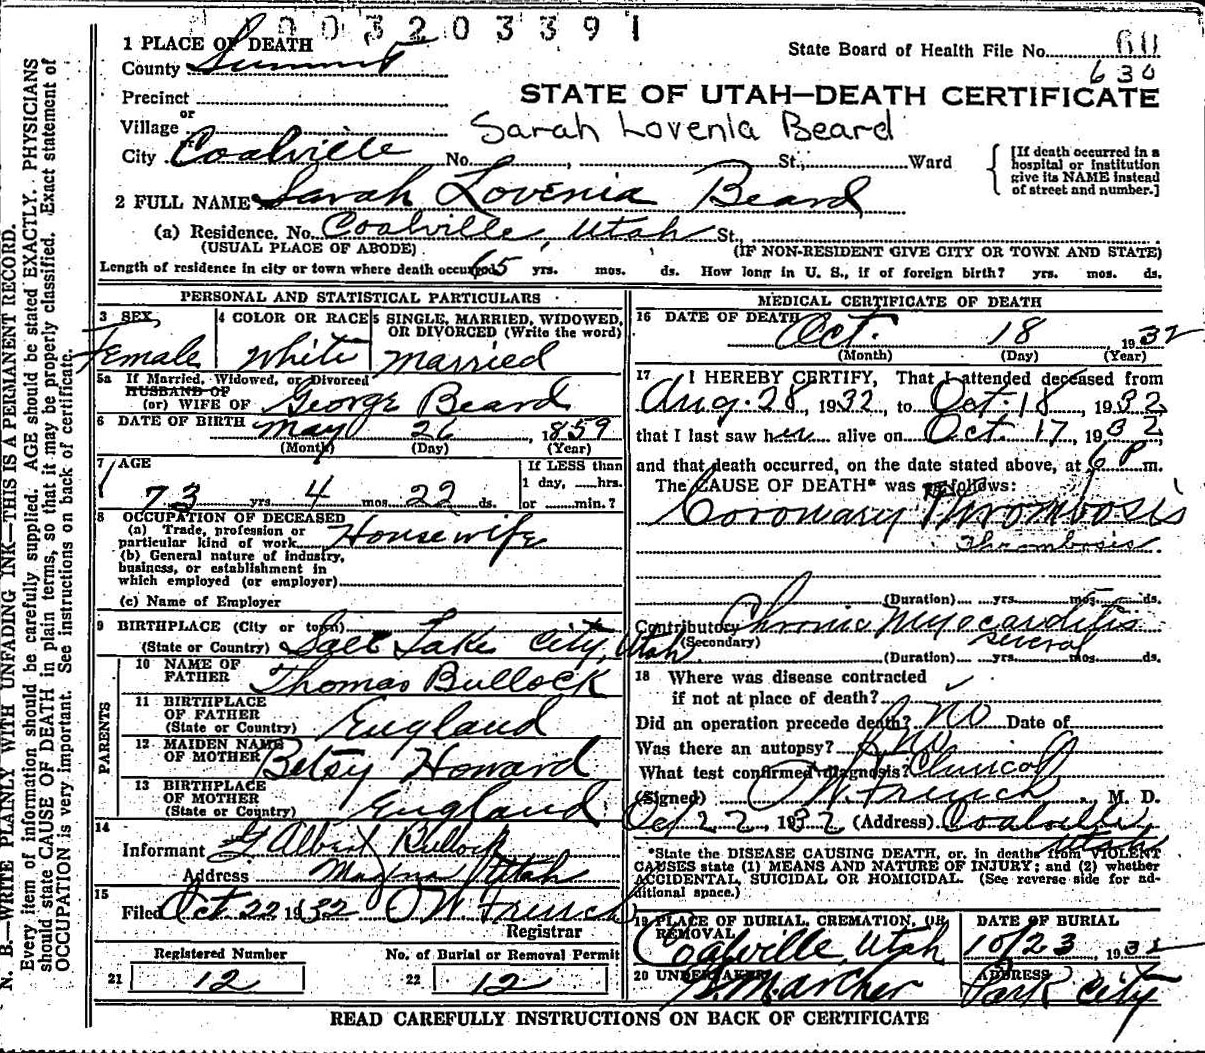 003203391
1 PLACE OF DEATH
State Board of Health File No. 60
County Summit
630
Precinct
STATE OF UTAH—DEATH CERTIFICATE
or
Village
Sarah Lovenia Beard
City Coalville No. , St., Ward
[If death occurred in a
hospital or institution
give its NAME instead
of street and number.]
2 FULL NAME Sarah Lovenia Beard
(a) Residence. No. Coalville, Utah St.,
(USUAL PLACE OF ABODE) (IF NON-RESIDENT GIVE CITY OR TOWN AND STATE)
Length of residence in city or town where death occurred 65 yrs. mos. ds. How long in U. S., if of foreign birth? yrs. mos. ds.
PERSONAL AND STATISTICAL PARTICULARS
3 SEX
Female
4 COLOR OR RACE
White
5 SINGLE, MARRIED, WIDOWED,
OR DIVORCED (Write the word)
Married
5a If Married, Widowed, or Divorced
HUSBAND OF
(or) WIFE OF George Beard
6 DATE OF BIRTH May 26, 1859
(Month) (Day) (Year)
7 AGE
73 yrs. 4 mos. 22 ds.
If LESS than
1 day, ......hrs.
or ......min.?
8 OCCUPATION OF DECEASED
(a) Trade, profession or
particular kind of work Housewife
(b) General nature of industry,
business, or establishment in
which employed (or employer)
(c) Name of Employer
9 BIRTHPLACE (City or town)
(State or Country) Salt Lake City, Utah
PARENTS
10 NAME OF
FATHER Thomas Bullock
11 BIRTHPLACE
OF FATHER
(State or Country) England
12 MAIDEN NAME
OF MOTHER Betsy Howard
13 BIRTHPLACE
OF MOTHER
(State or Country) England
14
Informant G Albert Bullock
Address Magna Utah
15
Filed Oct. 22 1932 O W French
Registrar
Registered Number
21 12
No. of Burial or Removal Permit
22 12
MEDICAL CERTIFICATE OF DEATH
16 DATE OF DEATH
Oct. 18 1932
(Month) (Day) (Year)
17 I HEREBY CERTIFY, That I attended deceased from
Aug. 28, 1932, to Oct. 18, 1932
that I last saw her alive on Oct. 17, 1932,
and that death occurred, on the date stated above, at 6 P m.
The CAUSE OF DEATH* was as follows:
Coronary Thrombosis
Thrombosis
(Duration) yrs. mos. ds.
Contributory Chronic Myocarditis
(Secondary) several
(Duration) yrs. mos. ds.
18 Where was disease contracted
if not at place of death?
Did an operation precede death? No Date of
Was there an autopsy? No
What test confirmed diagnosis? Clinical
(Signed) O W. French, M. D.
Oct 22, 1932 (Address) Coalville,
Utah
*State the DISEASE CAUSING DEATH, or, in deaths from VIOLENT
CAUSES state (1) MEANS AND NATURE OF INJURY; and (2) whether
ACCIDENTAL, SUICIDAL OR HOMICIDAL. (See reverse side for ad-
ditional space.)
19 PLACE OF BURIAL, CREMATION, OR
REMOVAL
Coalville, Utah
DATE OF BURIAL
10/23, 1932
20 UNDERTAKER
Archer
ADDRESS
Park City
READ CAREFULLY INSTRUCTIONS ON BACK OF CERTIFICATE
N. B.—WRITE PLAINLY WITH UNFADING INK—THIS IS A PERMANENT RECORD.
Every item of information should be carefully supplied. AGE should be stated EXACTLY. PHYSICIANS
should state CAUSE OF DEATH in plain terms, so that it may be properly classified. Exact statement of
OCCUPATION is very important. See instructions on back of certificate.